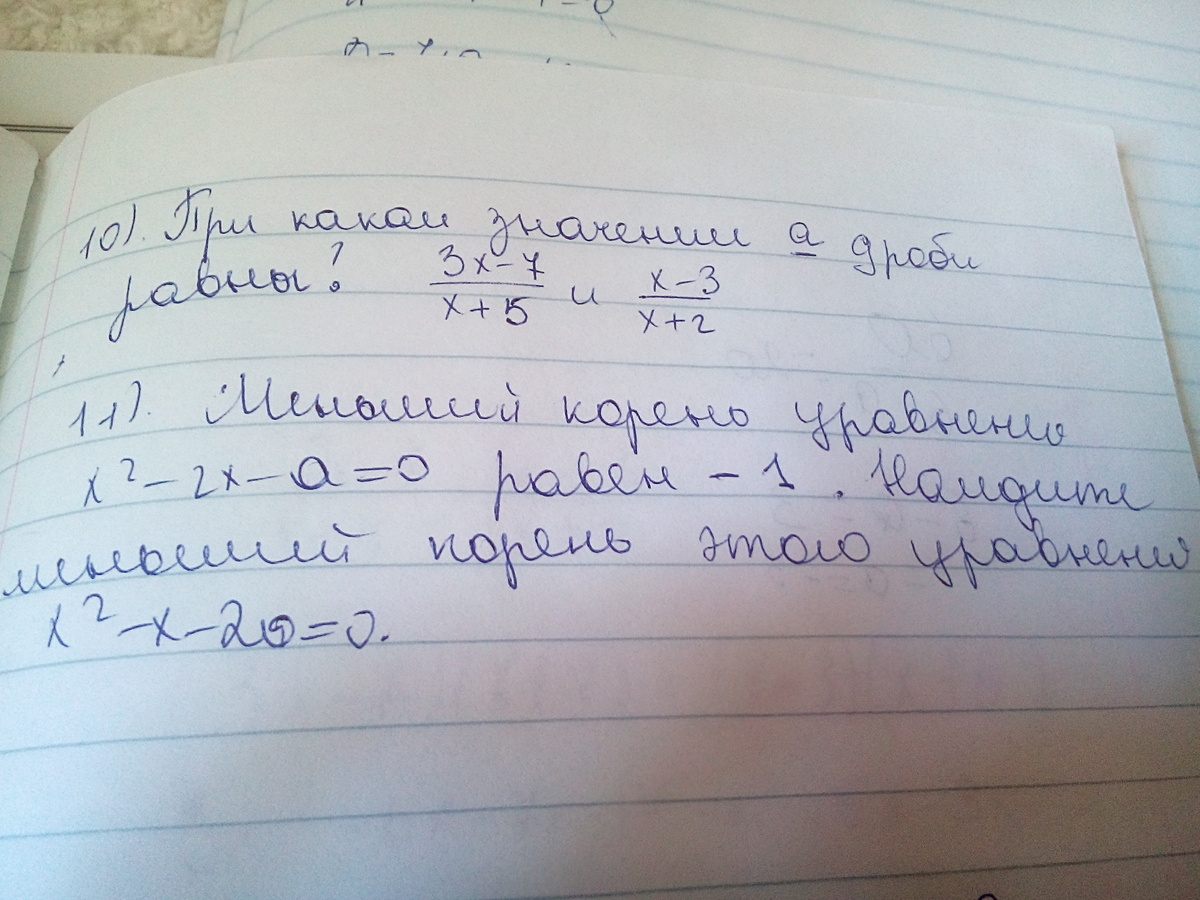 10). При каком значении a дроби
равны? 3x-7/x+5 и x-3/x+2
11). Меньший корень уравнения
x²-2x-a=0 равен -1. Найдите
меньший корень этого уравнения
x²-x-2a=0.